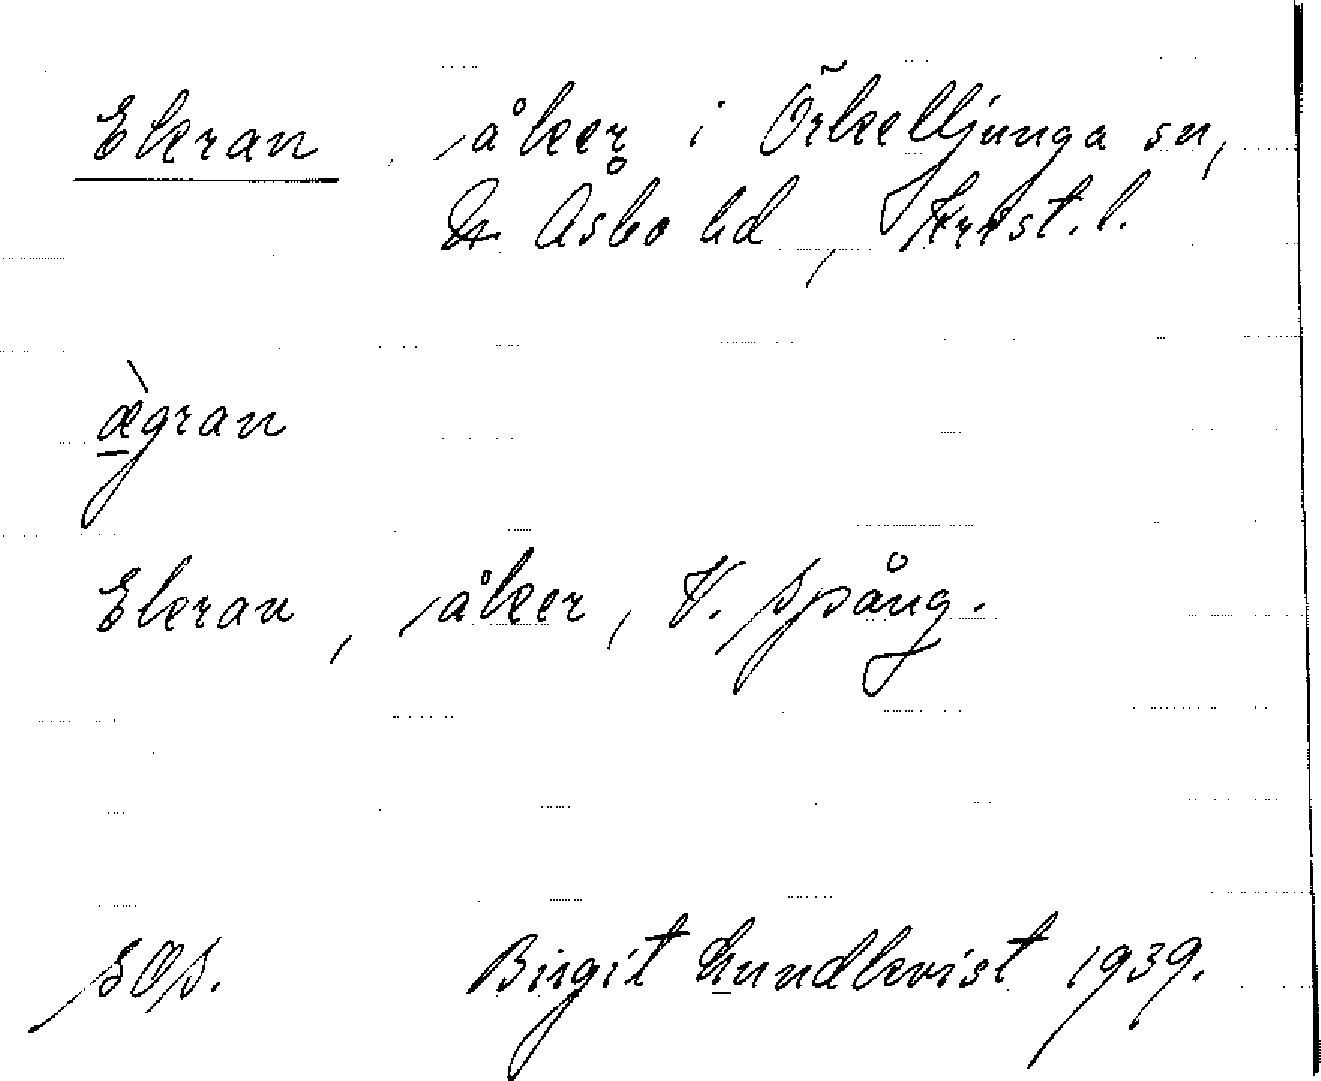 Ekran, åker i Örkelljunga sn,
N Åsbo hd, Krist. l.
ägran
Ekran, åker, V. Spång.
SOS. Birgit Lundkvist 1939.